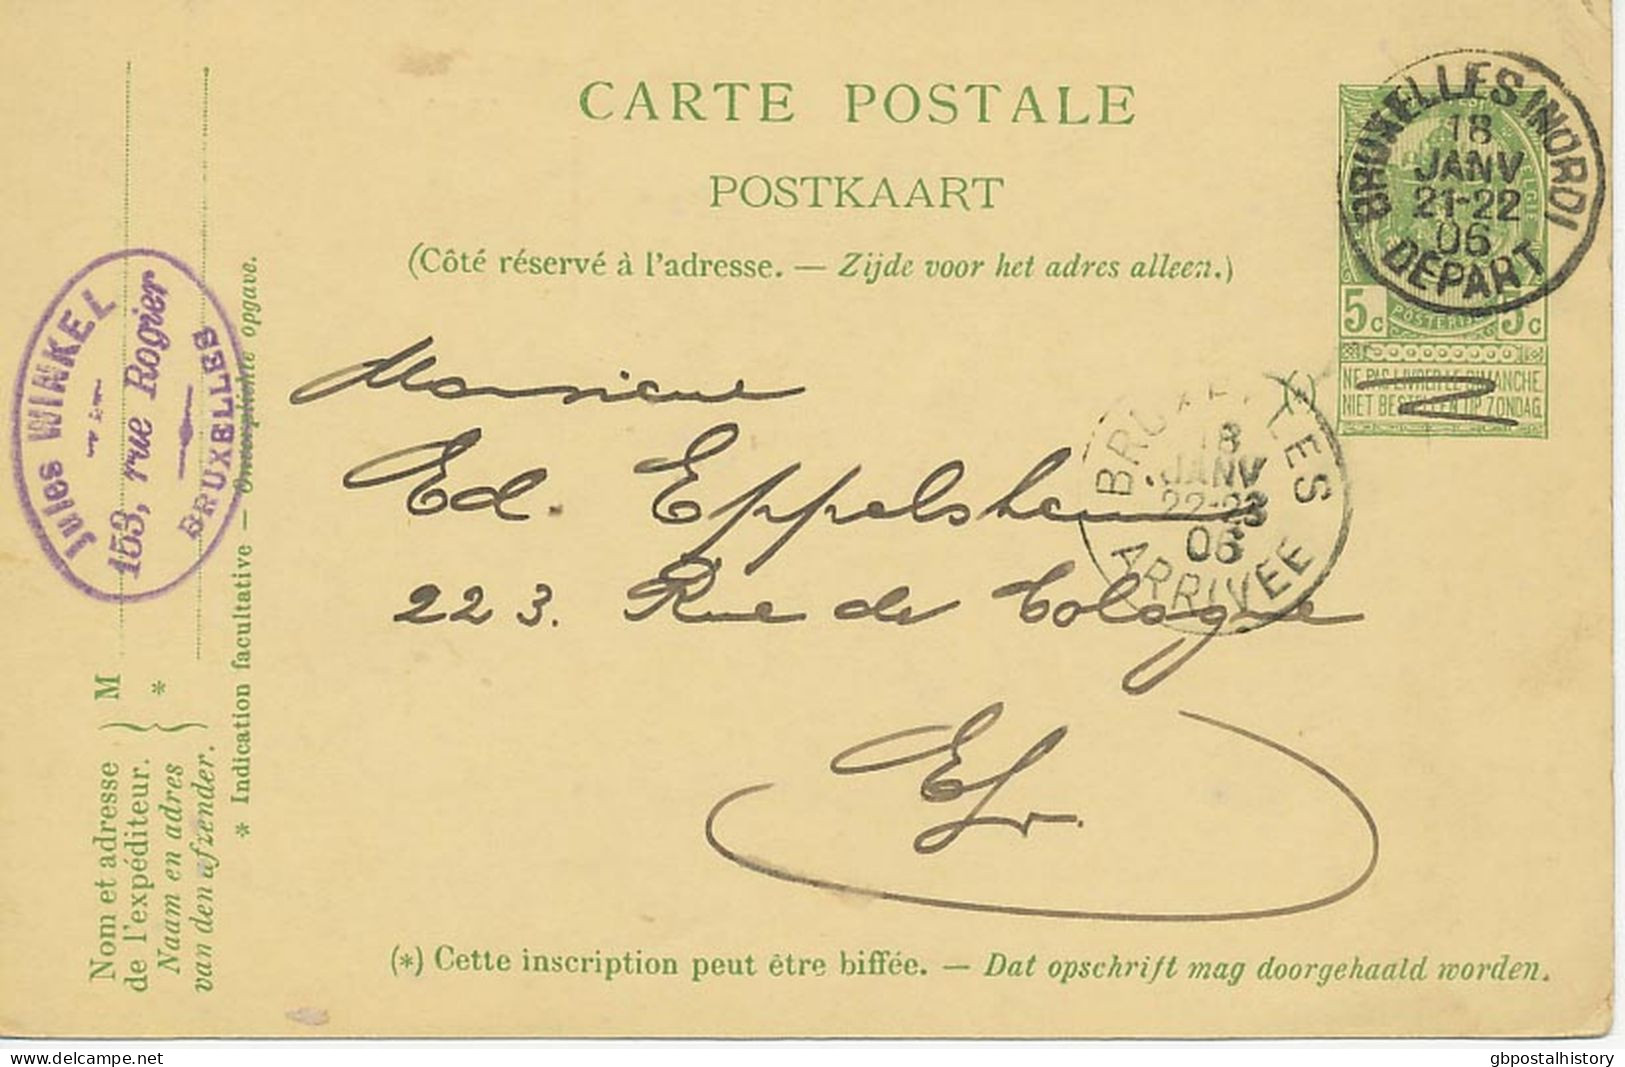 CARTE POSTALE
POSTKAART
(Côté réservé à l'adresse. — Zijde voor het adres alleen.)
BRUXELLES (NORD)
18
JANV
21-22
06
DEPART
5 c 5 c
NE PAS LIVRER LE DIMANCHE.
NIET BESTELLEN OP ZONDAG.
BRUXELLES
18
JANV
22-23
06
ARRIVEE
Monsieur
Ed. Eppelsheim
223. Rue de Cologne
(*) Cette inscription peut être biffée. — Dat opschrift mag doorgehaald worden.
Jules WINKEL
153, rue Rogier
BRUXELLES
M
*
Nom et adresse
de l'expéditeur.
Naam en adres
van den afzender.
* Indication facultative — Onverplichte opgave.
gbpostalhistory